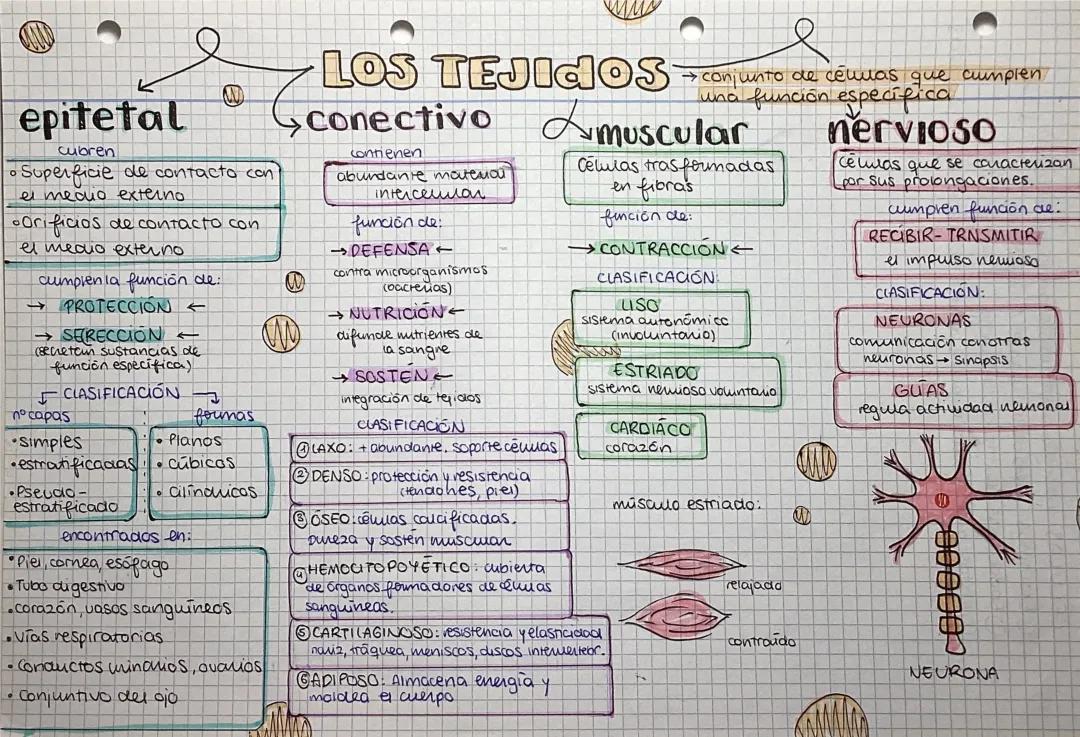 LOS TEJIdOS
→ conjunto de células que cumplen
una función específica
epitetal
cubren
• Superficie de contacto con
el medio externo
• Orificios de contacto con
el medio externo
cumplen la función de:
→ PROTECCIÓN ←
→ SECRECCIÓN ←
(secretan sustancias de
función específica)
CLASIFICACIÓN
nº capas
• simples
• estratificadas
• Pseudo-
estratificado
formas
• Planos
• cúbicos
• cilíndricos
encontrados en:
• Piel, cornea, esófago
• Tubo digestivo
• corazón, vasos sanguíneos
• Vías respiratorias
• Conductos urinarios, ovarios
• Conjuntivo del ojo
conectivo
contienen
abundante material
intercelular
función de:
→ DEFENSA ←
contra microorganismos
(bacterias)
→ NUTRICIÓN ←
difunde nutrientes de
la sangre
→ SOSTEN ←
integración de tejidos
CLASIFICACIÓN
① LAXO: + abundante. soporte células
② DENSO: protección y resistencia
(tendones, piel)
③ ÓSEO: células calcificadas.
dureza y sostén muscular
④ HEMOCITOPOYÉTICO: cubierta
de órganos formadores de células
sanguíneas.
⑤ CARTILAGINOSO: resistencia y elasticidad
nariz, tráquea, meniscos, discos intervertebr.
⑥ ADIPOSO: Almacena energía y
moldea el cuerpo
muscular
Células trasformadas
en fibras
función de:
→ CONTRACCIÓN ←
CLASIFICACIÓN:
LISO
sistema autonómico
(involuntario)
ESTRIADO
sistema nervioso voluntario
CARDIÁCO
corazón
músculo estriado:
relajado
contraído
nervioso
Células que se caracterizan
por sus prolongaciones.
cumplen función de:
RECIBIR - TRNSMITIR
el impulso nervioso
CLASIFICACIÓN:
NEURONAS
comunicación con otras
neuronas → sinapsis
GLÍAS
regula actividad neuronal
NEURONA